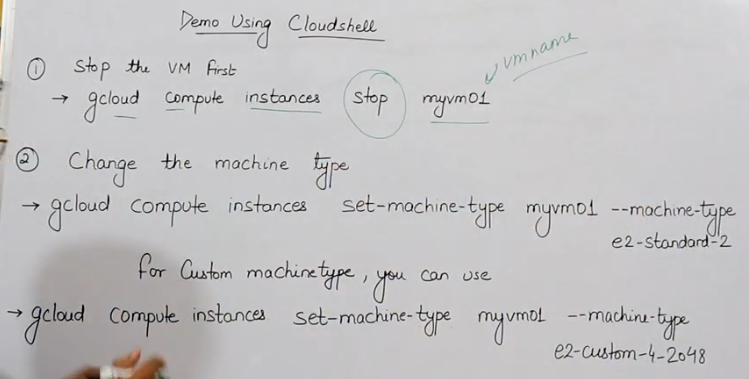 Demo Using Cloudshell
① Stop the VM first
→ gcloud compute instances stop myvm01
✓ vmname
② Change the machine type
→ gcloud compute instances set-machine-type myvm01 --machine-type
e2-standard-2
for Custom machinetype, you can use
→ gcloud compute instances set-machine-type myvm01 --machine-type
e2-custom-4-2048